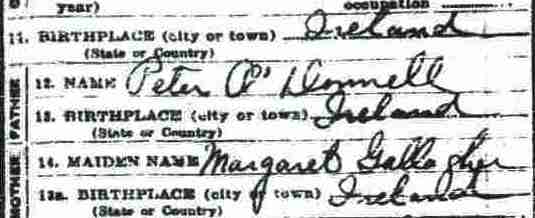 year) occupation
11. BIRTHPLACE (city or town) Ireland
(State or Country)
FATHER
12. NAME Peter O'Donnell
13. BIRTHPLACE (city or town) Ireland
(State or Country)
MOTHER
14. MAIDEN NAME Margaret Gallagher
13a. BIRTHPLACE (city or town) Ireland
(State or Country)